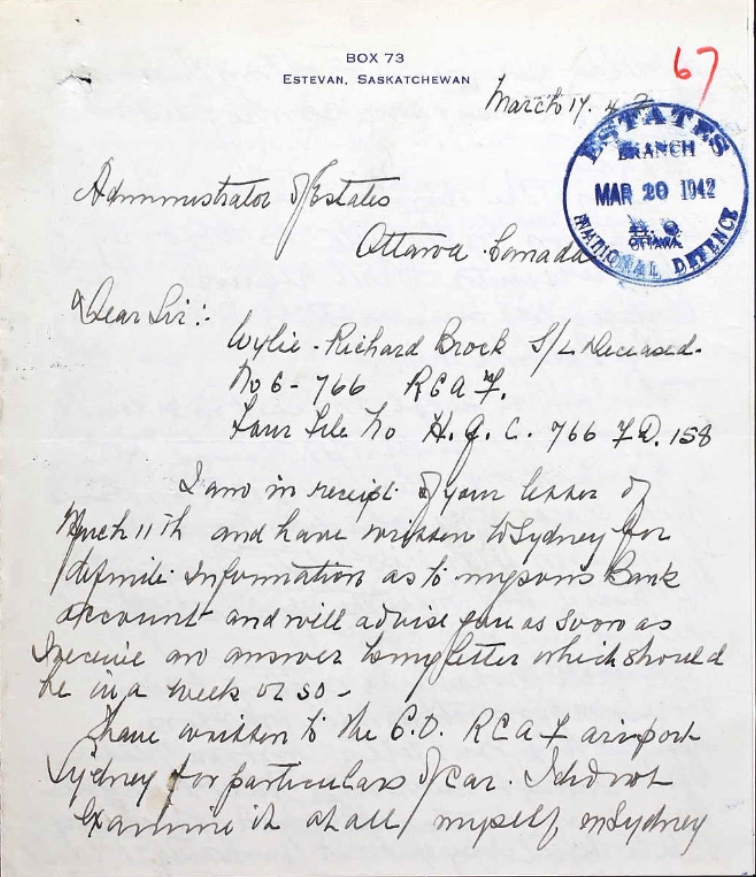 67
BOX 73
ESTEVAN, SASKATCHEWAN
March 17. 42
ESTATES
BRANCH
MAR 20 1942
OTTAWA
NATIONAL DEFENCE
Administrator of Estates
Ottawa Canada
Dear Sir:-
Wylie - Richard Brock S/L Deceased.
No C - 766 RCAF.
Your File No H.Q. C. 766 F.D. 158
I am in receipt of your letter of
March 11th and have written to Sydney for
definite information as to my sons Bank
account and will advise you as soon as
I receive an answer to my letter which should
be in a week or so -
I have written to the C.O. RCAF airport
Sydney for particulars of car. I did not
examine it at all myself, in Sydney